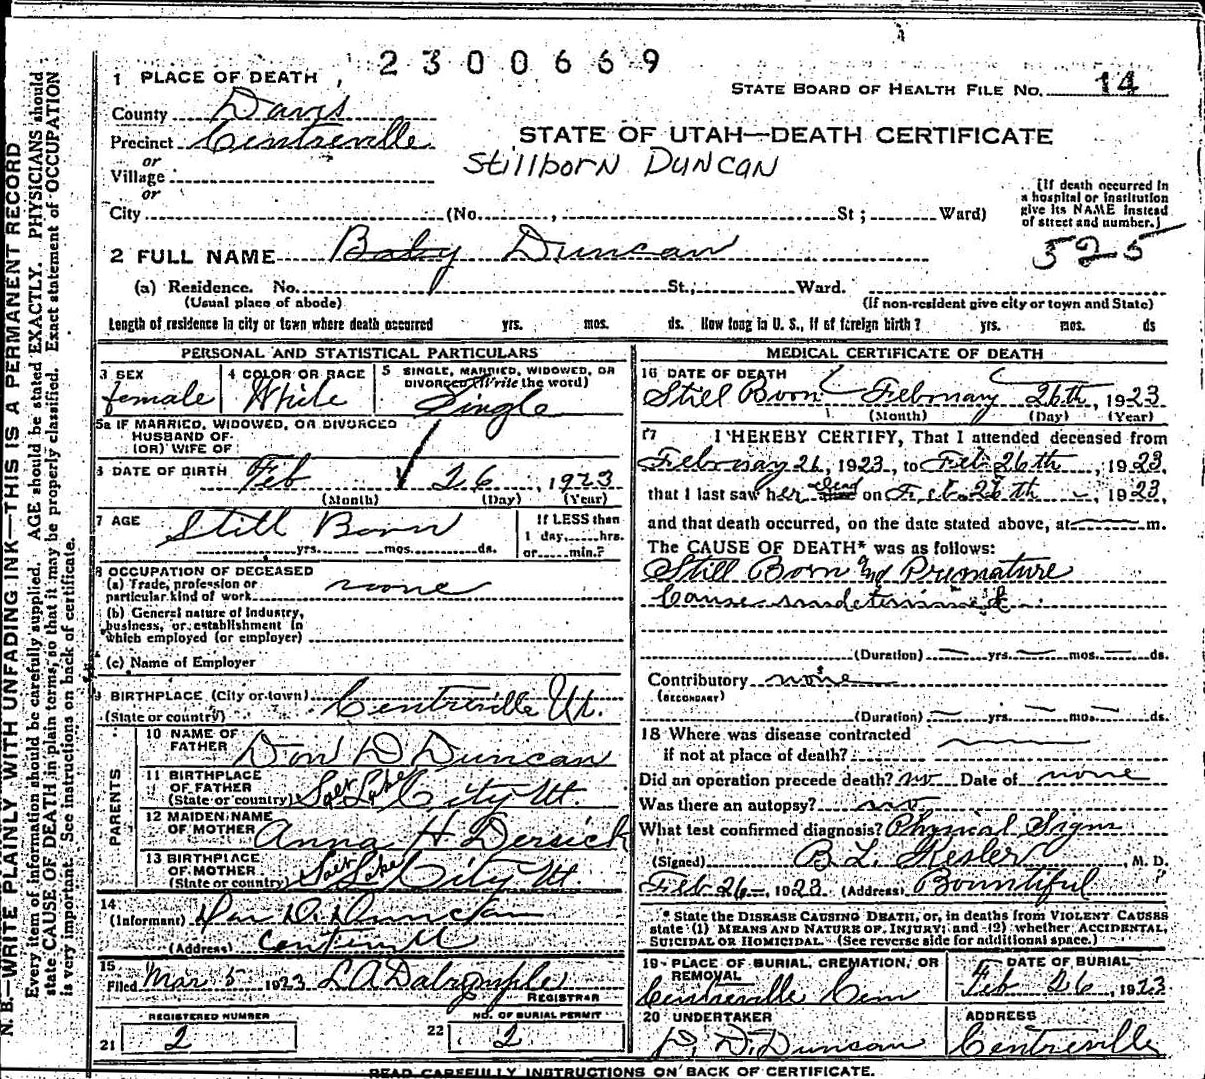 2300669
1 PLACE OF DEATH
STATE BOARD OF HEALTH FILE NO. 14
County Davis
Precinct Centreville
STATE OF UTAH—DEATH CERTIFICATE
or
Stillborn Duncan
Village
or
City (No. , St ; Ward)
(If death occurred in
a hospital or institution
give its NAME instead
of street and number.)
2 FULL NAME Baby Duncan
525
(a) Residence. No. St., Ward.
(Usual place of abode) (If non-resident give city or town and State)
Length of residence in city or town where death occurred yrs. mos. ds. How long in U. S., if of foreign birth ? yrs. mos. ds
PERSONAL AND STATISTICAL PARTICULARS
3 SEX female
4 COLOR OR RACE White
5 SINGLE, MARRIED, WIDOWED, OR
DIVORCED (Write the word)
Single
5a IF MARRIED, WIDOWED, OR DIVORCED
HUSBAND OF
(OR) WIFE OF
6 DATE OF BIRTH Feb 26, 1923
(Month) (Day) (Year)
7 AGE Still Born
yrs. mos. ds.
If LESS than
1 day, hrs.
or min.?
8 OCCUPATION OF DECEASED
(a) Trade, profession or
particular kind of work none
(b) General nature of industry,
business, or establishment in
which employed (or employer)
(c) Name of Employer
9 BIRTHPLACE (City or town)
(State or country) Centreville Ut.
PARENTS
10 NAME OF
FATHER Don D Duncan
11 BIRTHPLACE
OF FATHER
(State or country) Salt Lake City Ut.
12 MAIDEN NAME
OF MOTHER Anna H Dersick
13 BIRTHPLACE
OF MOTHER
(State or country) Salt Lake City Ut
14
(Informant) Don D. Duncan
(Address) Centerville
15
Filed Mar 5 1923 L A Dalrymple
REGISTRAR
REGISTERED NUMBER
21 2
NO. OF BURIAL PERMIT
22 2
MEDICAL CERTIFICATE OF DEATH
16 DATE OF DEATH
Still Born February 26th, 1923
(Month) (Day) (Year)
17 I HEREBY CERTIFY, That I attended deceased from
February 26, 1923, to Feb. 26th, 1923,
that I last saw her dead on Feb. 26th, 1923,
and that death occurred, on the date stated above, at m.
The CAUSE OF DEATH* was as follows:
Still Born and Premature
Cause undetermined
(Duration) yrs. mos. ds.
Contributory none
(SECONDARY)
(Duration) yrs. mos. ds.
18 Where was disease contracted
if not at place of death?
Did an operation precede death? no Date of none
Was there an autopsy? no
What test confirmed diagnosis? Physical Signs
(Signed) B. L. Kesler, M. D.
Feb 26, 1923 (Address) Bountiful ?
* State the DISEASE CAUSING DEATH, or, in deaths from VIOLENT CAUSES
state (1) MEANS AND NATURE OF INJURY; and (2) whether ACCIDENTAL,
SUICIDAL OR HOMICIDAL. (See reverse side for additional space.)
19 PLACE OF BURIAL, CREMATION, OR
REMOVAL
Centreville Cem
DATE OF BURIAL
Feb 26, 1923
20 UNDERTAKER
D. D. Duncan
ADDRESS
Centreville
READ CAREFULLY INSTRUCTIONS ON BACK OF CERTIFICATE.
N. B.—WRITE PLAINLY WITH UNFADING INK—THIS IS A PERMANENT RECORD
Every item of information should be carefully supplied. AGE should be stated EXACTLY. PHYSICIANS should
state CAUSE OF DEATH in plain terms, so that it may be properly classified. Exact statement of OCCUPATION
is very important. See instructions on back of certificate.